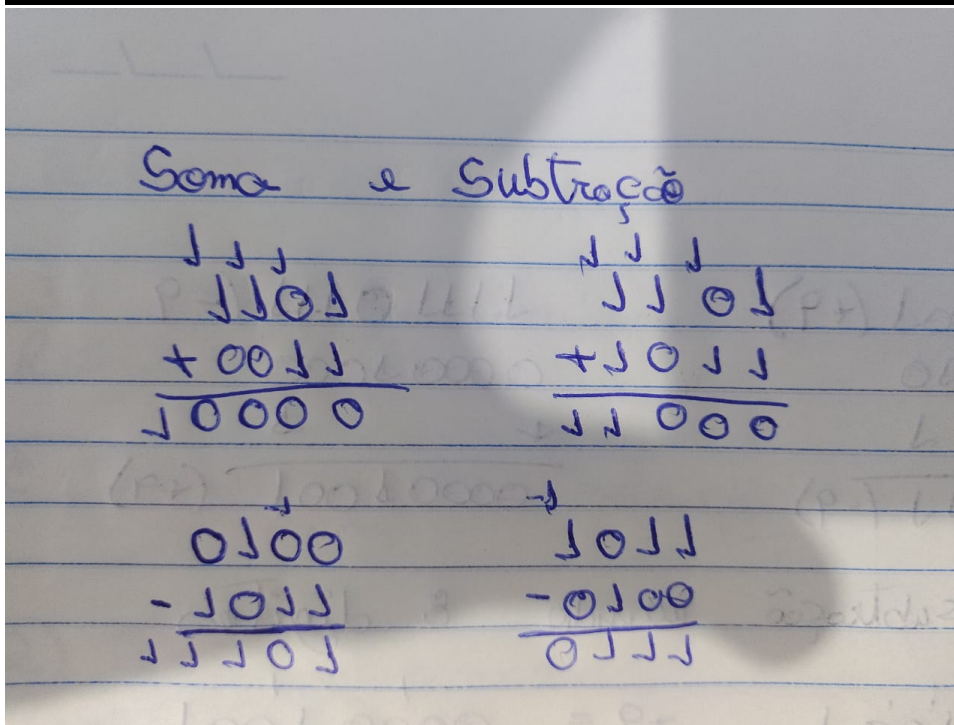 Soma e Subtração
1 1 1
1101
+ 0011
10000
1 1 1
1101
+1011
11000
1
0100
- 1011
11101
-1
1011
-0100
0111